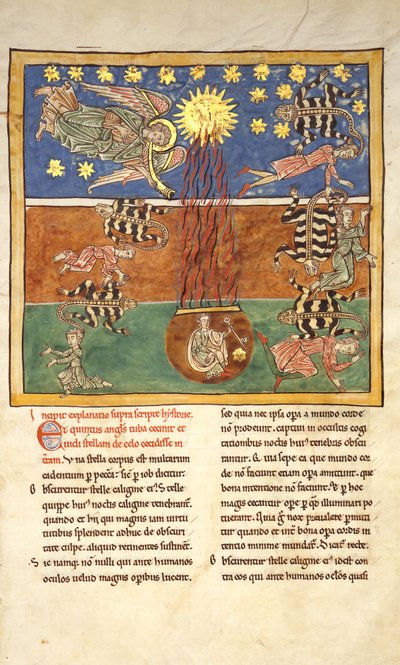 Incipit explanatio supra scripte hystorie.
Et quintus angls tuba cecinit et
vidi stellam de celo cecidisse in
terram. Una stella corpus est multarum
cadentium p pecca: sic p iob dicitur.
Obscurentur stelle caligine ei. Stelle
quippe hui noctis caligine tenebrant.
quando et hij qui magis iam virtu
tibus splendent adhuc de obscuri
tate culpe. aliquid retinentes sustinent.
Sic namq: non nulli qui ante humanos
oculos uelud magnis operibus lucent.
sed qua nec ipsa opa a mundo corde
non pdeunt. captiui in occultis cogi
tationibus noctis hui tenebris obscu
rantur. qui sepe ea que mundo cor
de non faciunt etiam opera amittunt. que
bona intentione non faciunt. Et p hoc
magis cecantur ope p qd illuminari po
tuerant. Quia g nox preualere pmitti
tur quando et inter bona opa cordis in
tentio minime mundatur. dicatur recte.
Obscurentur stelle caligine ei idest con
tra eos qui ante humanos oclos quasi